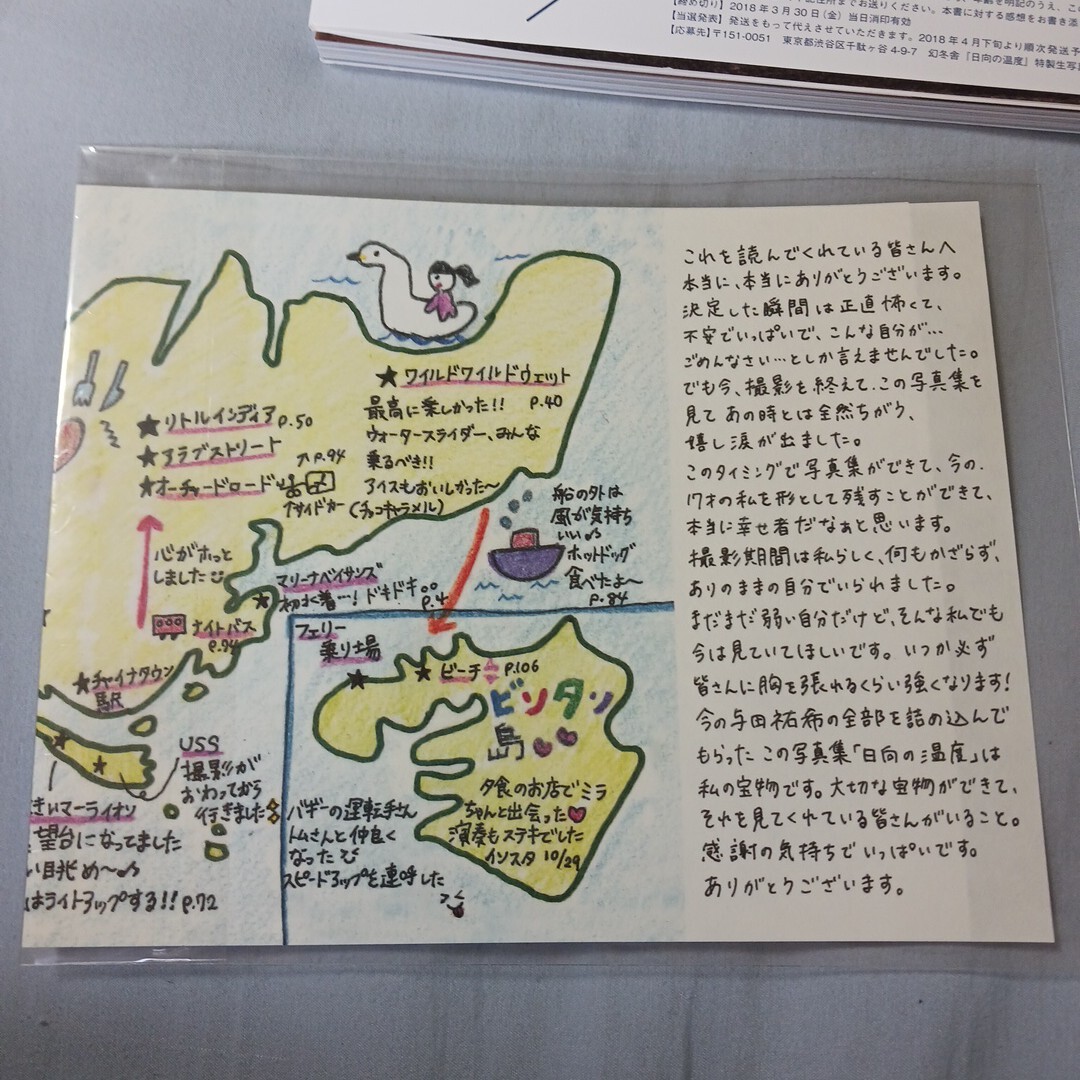 【締め切り】2018年3月30日(金)当日消印有効
【当選発表】発送をもって代えさせていただきます。2018年4月下旬より順次発送予
【応募先】〒151-0051 東京都渋谷区千駄ヶ谷4-9-7 幻冬舎「日向の温度」特製生写真
★ワイルドワイルドウェット
最高に楽しかった!! P.40
ウォータースライダー、みんな
乗るべき!!
アイスもおいしかった〜
(チョコキャラメル)
★リトルインディア P.50
★アラブストリート
↑P.94
★オーチャードロード
↑サイドカー
心がホッと
しました
ナイトバス
P.94
マリーナベイサンズ
★初水着…!ドキドキ。。
P.4
船の外は
風が気持ち
いい♪
ホットドッグ
食べたよ〜
P.84
★チャイナタウン
駅
USS
撮影が
おわってから
行きました
きいマーライオン
望台になってました
い眺め〜♪
はライトアップする!!P.72
フェリー
乗り場
★
★ビーチ P.106
ビンタン
島
夕食のお店でミラ
ちゃんと出会った♥
演奏もステキでした
インスタ 10/29
バギーの運転手さん
トムさんと仲良く
なった
スピードアップを連呼した
これを読んでくれている皆さんへ
本当に、本当にありがとうございます。
決定した瞬間は正直怖くて、
不安でいっぱいで、こんな自分が…
ごめんなさい…としか言えませんでした。
でも今、撮影を終えて、この写真集を
見てあの時とは全然ちがう、
嬉し涙が出ました。
このタイミングで写真集ができて、今の、
17才の私を形として残すことができて、
本当に幸せ者だなぁと思います。
撮影期間は私らしく、何もかざらず、
ありのままの自分でいられました。
まだまだ弱い自分だけど、そんな私でも
今は見ていてほしいです。いつか必ず
皆さんに胸を張れるくらい強くなります!
今の与田祐希の全部を詰め込んで
もらったこの写真集「日向の温度」は
私の宝物です。大切な宝物ができて、
それを見てくれている皆さんがいること。
感謝の気持ちでいっぱいです。
ありがとうございます。